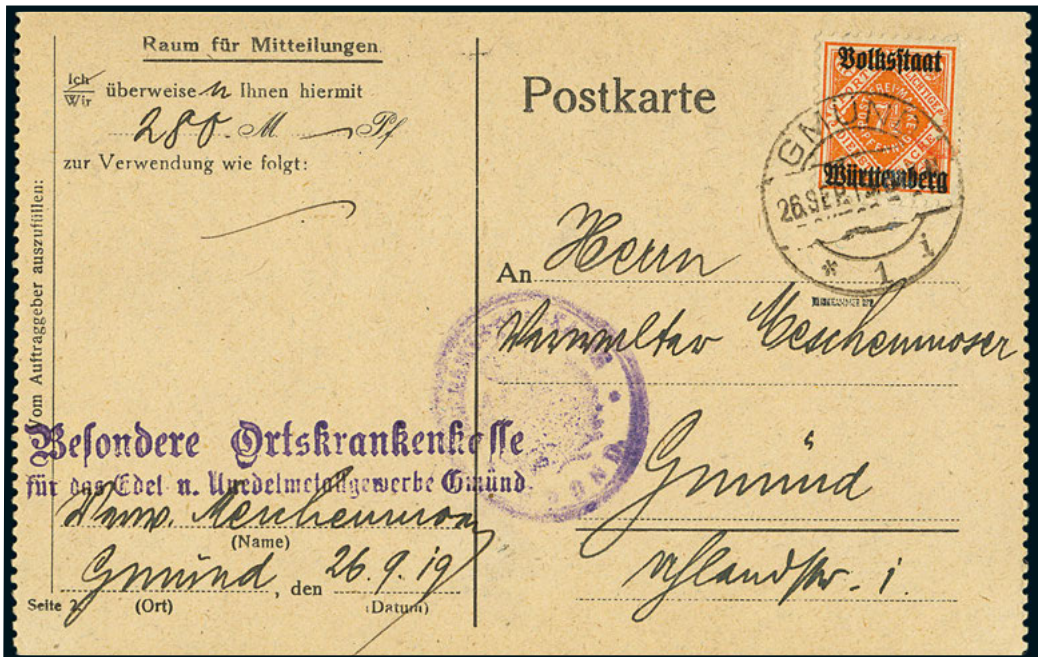 Raum für Mitteilungen.
Ich
Wir überweise n Ihnen hiermit
280. M — Pf
zur Verwendung wie folgt:
Vom Auftraggeber auszufüllen:
Besondere Ortskrankenkasse
für das Edel- u. Unedelmetallgewerbe Gmünd.
Verw. Meschenmoser
(Name)
Gmünd, den 26.9.19
Seite 2. (Ort) (Datum)
Postkarte
Volksstaat
7½
PFENNIG
Württemberg
GMÜND
26.SEP.
* 1 i
An Herrn
Verwalter Meschenmoser
Gmünd
Uhlandstr. 1.
GMÜND